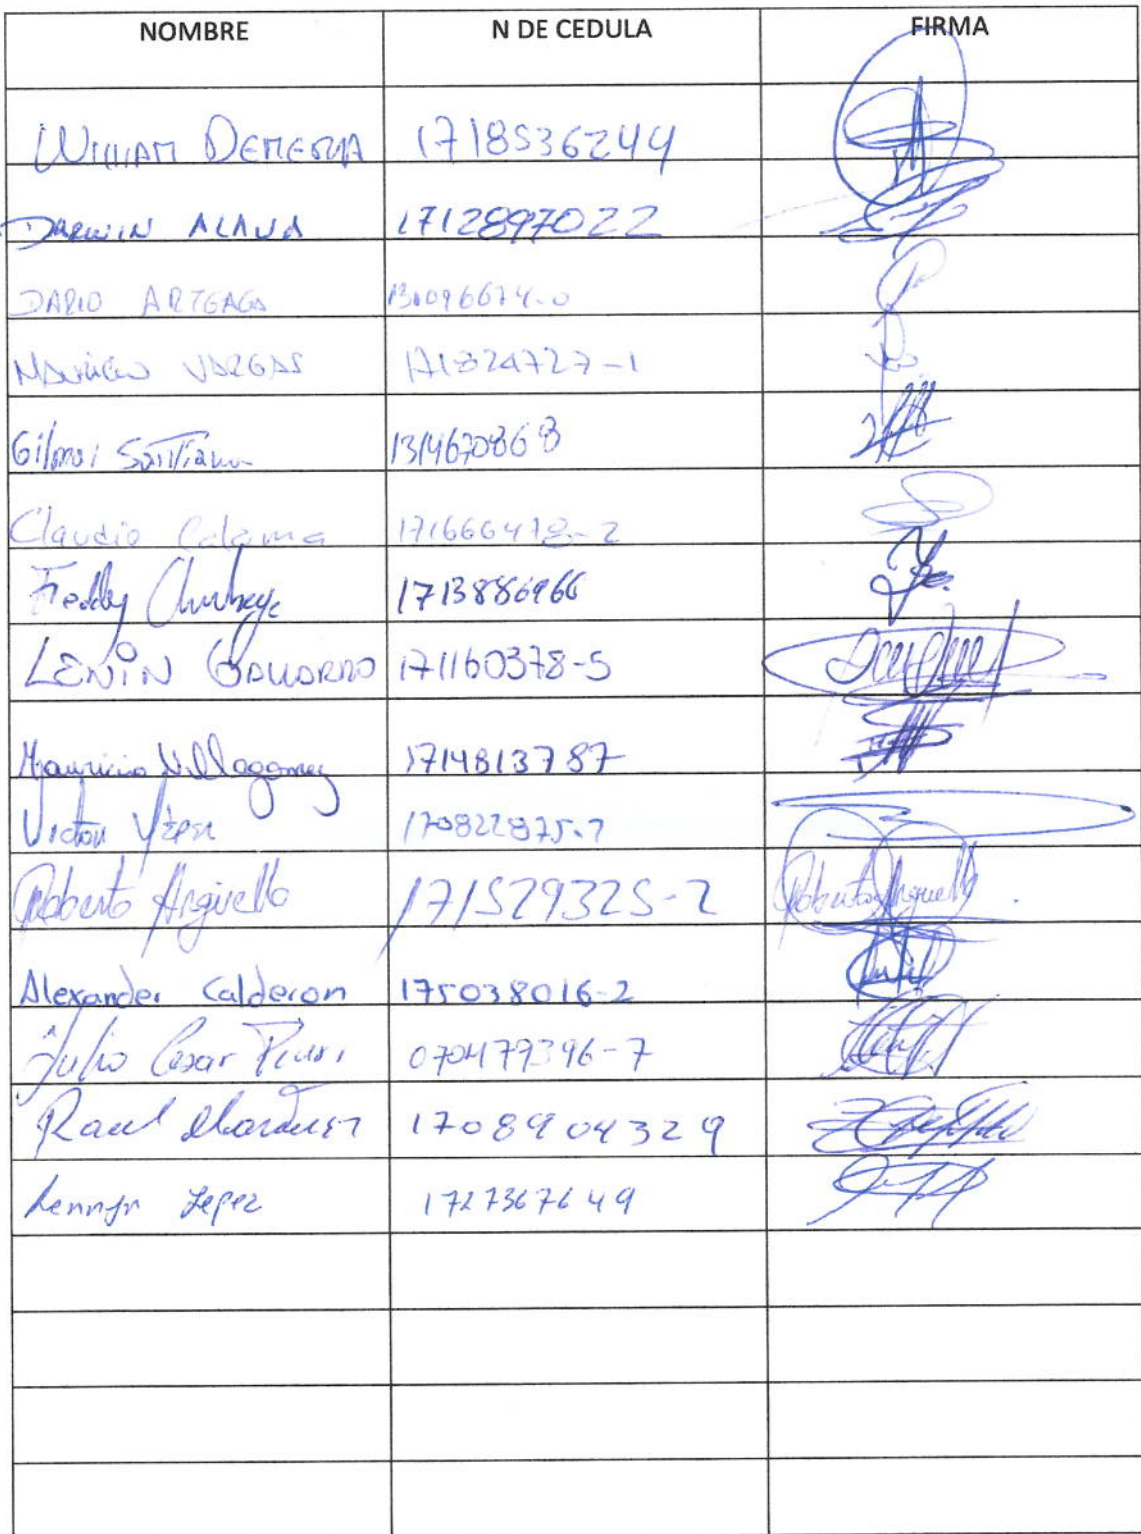 NOMBRE N DE CEDULA FIRMA
WILLIAM DEMERA 1718536244
DARWIN ALAVA 1712897022
DARIO ARTEAGA 130096674-0
MAURICIO VARGAS 171824727-1
Gilmar Santiana 1314670868
Claudio Calama 171666418-2
Freddy 1713886966
LENIN 171160378-5
Mauricio Villagomez 1714813787
Victor Yépez 170822875-7
Roberto Arguello 171529325-2 Roberto Arguello
Alexander Calderon 175038016-2
Julio Cesar 070479396-7
Raul 1708904329
Lennyn Lepez 1727367649